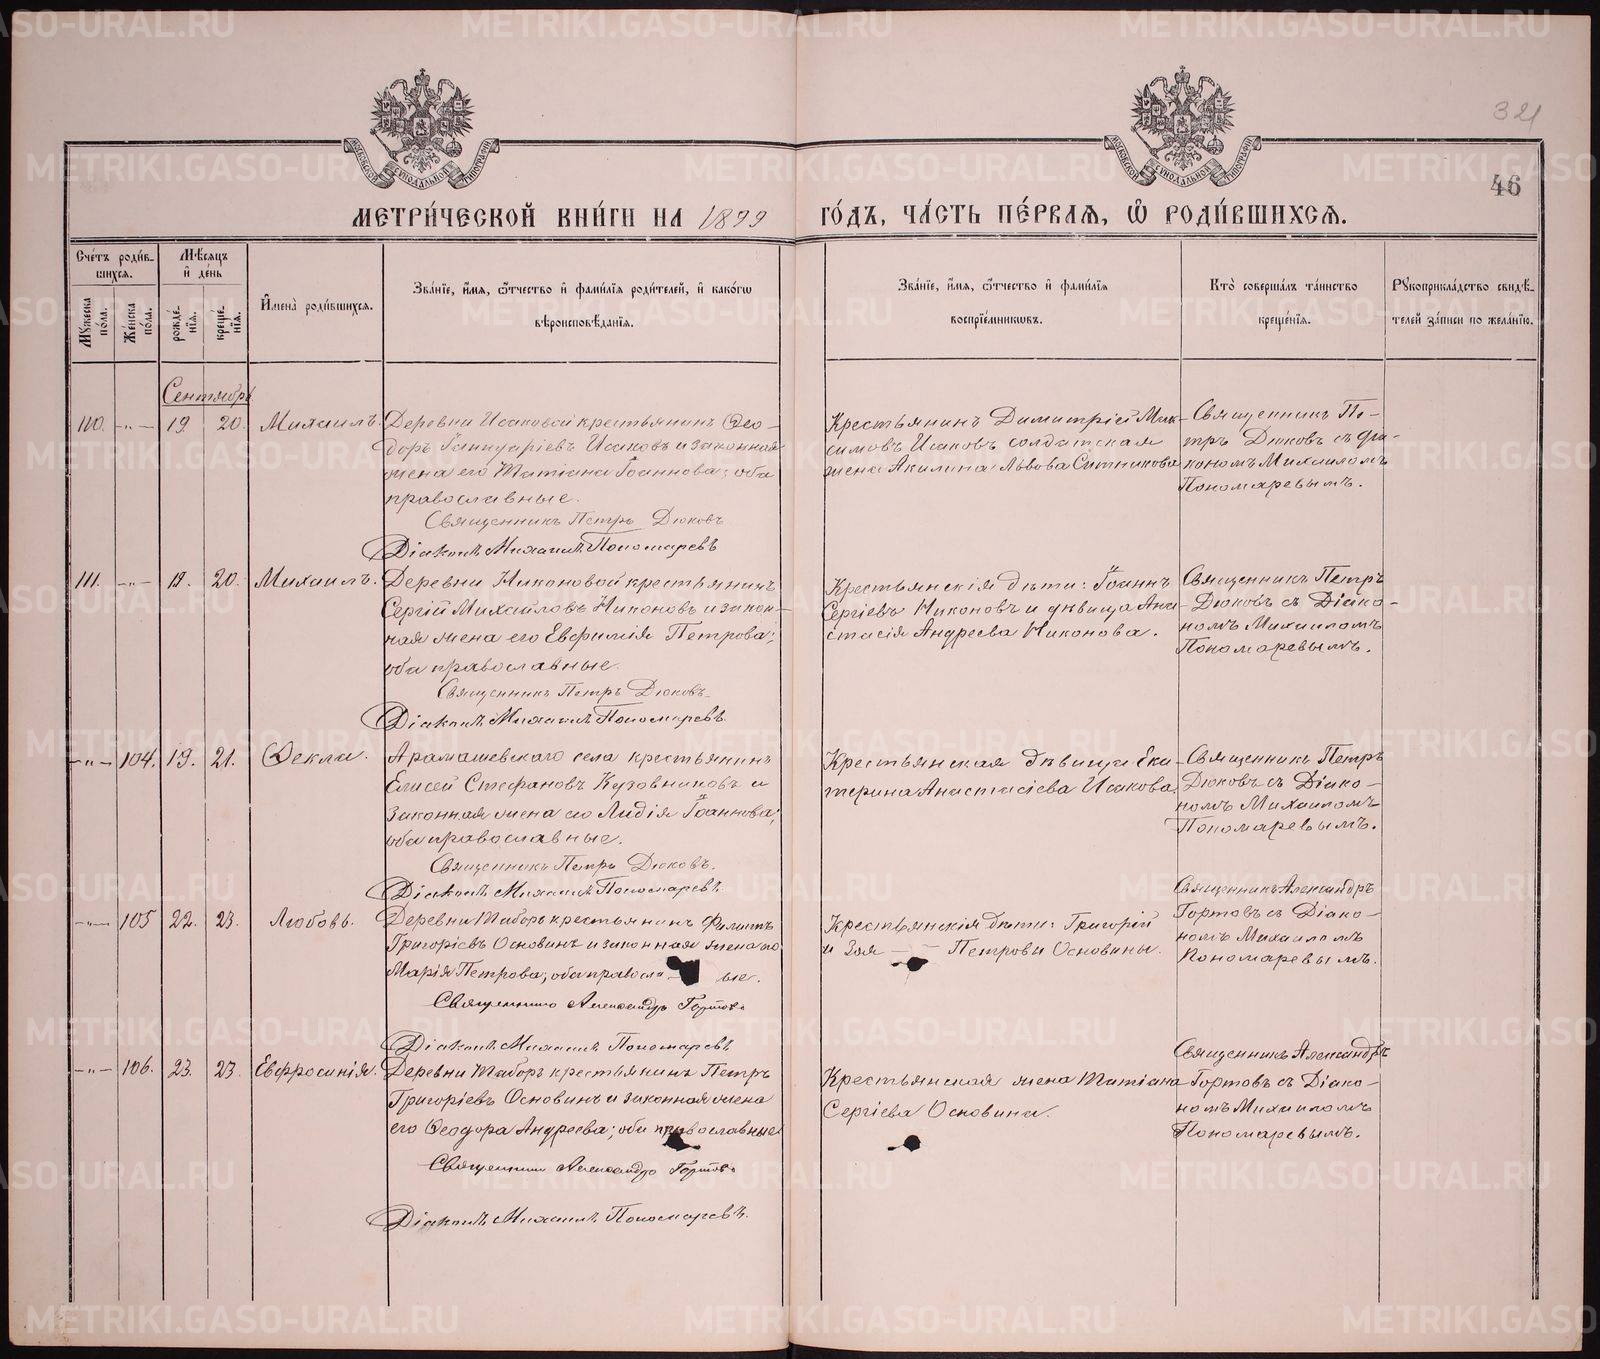 321
46
МОСКОВСКОЙ СѴНОДАЛЬНОЙ ТИПОГРАФІИ
МОСКОВСКОЙ СѴНОДАЛЬНОЙ ТИПОГРАФІИ
МЕТРИ́ЧЕСКОЙ КНИ́ГИ НА 1899 ГО́ДЪ, ЧА́СТЬ ПЕ́РВАЯ, Ѡ РОДИ́ВШИХСЯ.
Сче́тъ роди́в-
шихся.
Му́жеска по́ла.
Же́нска по́ла.
Мѣ́сяцъ
и де́нь
рожде́-
нія.
креще́-
нія.
Имена̀ роди́вшихся.
Зва́ніе, и́мя, ѻ́тчество и фами́лія роди́телей, и како́гѡ
вѣроисповѣ́данія.
Зва́ніе, и́мя, ѻ́тчество и фами́лія
воспріе́мниковъ.
Кто̀ соверша́лъ та́инство
креще́нія.
Рукоприкла́дство свидѣ́-
телей за́писи по жела́нію.
Сентябрь
110. -„- 19 20. Михаилъ.
Деревни Исаковой крестьянинъ Ѳео-
доръ Исаковъ и законная
жена его Татіана Іоаннова; оба
православные.
Священникъ Петръ Дюковъ
Діаконъ Михаилъ Пономаревъ
Крестьянинъ Димитрій Мак-
симовъ Исаковъ солдатская
жена Акилина Львова Ситникова
Священникъ Пе-
тръ Дюковъ съ діа-
кономъ Михаиломъ
Пономаревымъ.
111. -„- 19. 20. Михаилъ.
Деревни Никоновой крестьянинъ
Сергій Михайловъ Никоновъ и закон-
ная жена его Евфимія Петрова;
оба православные.
Священникъ Петръ Дюковъ
Діаконъ Михаилъ Пономаревъ
Крестьянскія дѣти: Іоаннъ
Сергіевъ Никоновъ и дѣвица Ана-
стасія Андреева Никонова.
Священникъ Петръ
Дюковъ съ Діако-
номъ Михаиломъ
Пономаревымъ.
-„- 104. 19. 21. Ѳекла.
Арамашевскаго села крестьянинъ
Елисей Стефановъ Кузовниковъ и
законная жена его Лидія Іоаннова;
оба православные.
Священникъ Петръ Дюковъ.
Діаконъ Михаилъ Пономаревъ
Крестьянская дѣвица Ека-
терина Анастасіева Исакова
Священникъ Петръ
Дюковъ съ Діако-
номъ Михаиломъ
Пономаревымъ.
-„- 105 22. 23. Любовь.
Деревни Таборъ крестьянинъ Филиппъ
Григоріевъ Основинъ и законная жена его
Марія Петрова; оба правосла ые.
Священникъ Александръ Гортовъ
Діаконъ Михаилъ Пономаревъ
Крестьянскія дѣти: Григорій
и Зоя - - Петровы Основины.
Священникъ Александръ
Гортовъ съ Діако-
номъ Михаиломъ
Пономаревымъ.
-„- 106. 23. 23. Евфросинія.
Деревни Таборъ крестьянинъ Петръ
Григоріевъ Основинъ и законная жена
его Ѳеодора Андреева; оба православные
Священникъ Александръ Гортовъ
Діаконъ Михаилъ Пономаревъ.
Крестьянская жена Татіана
Сергіева Основина.
Священникъ Александръ
Гортовъ съ Діако-
номъ Михаиломъ
Пономаревымъ.
METRIKI.GASO-URAL.RU